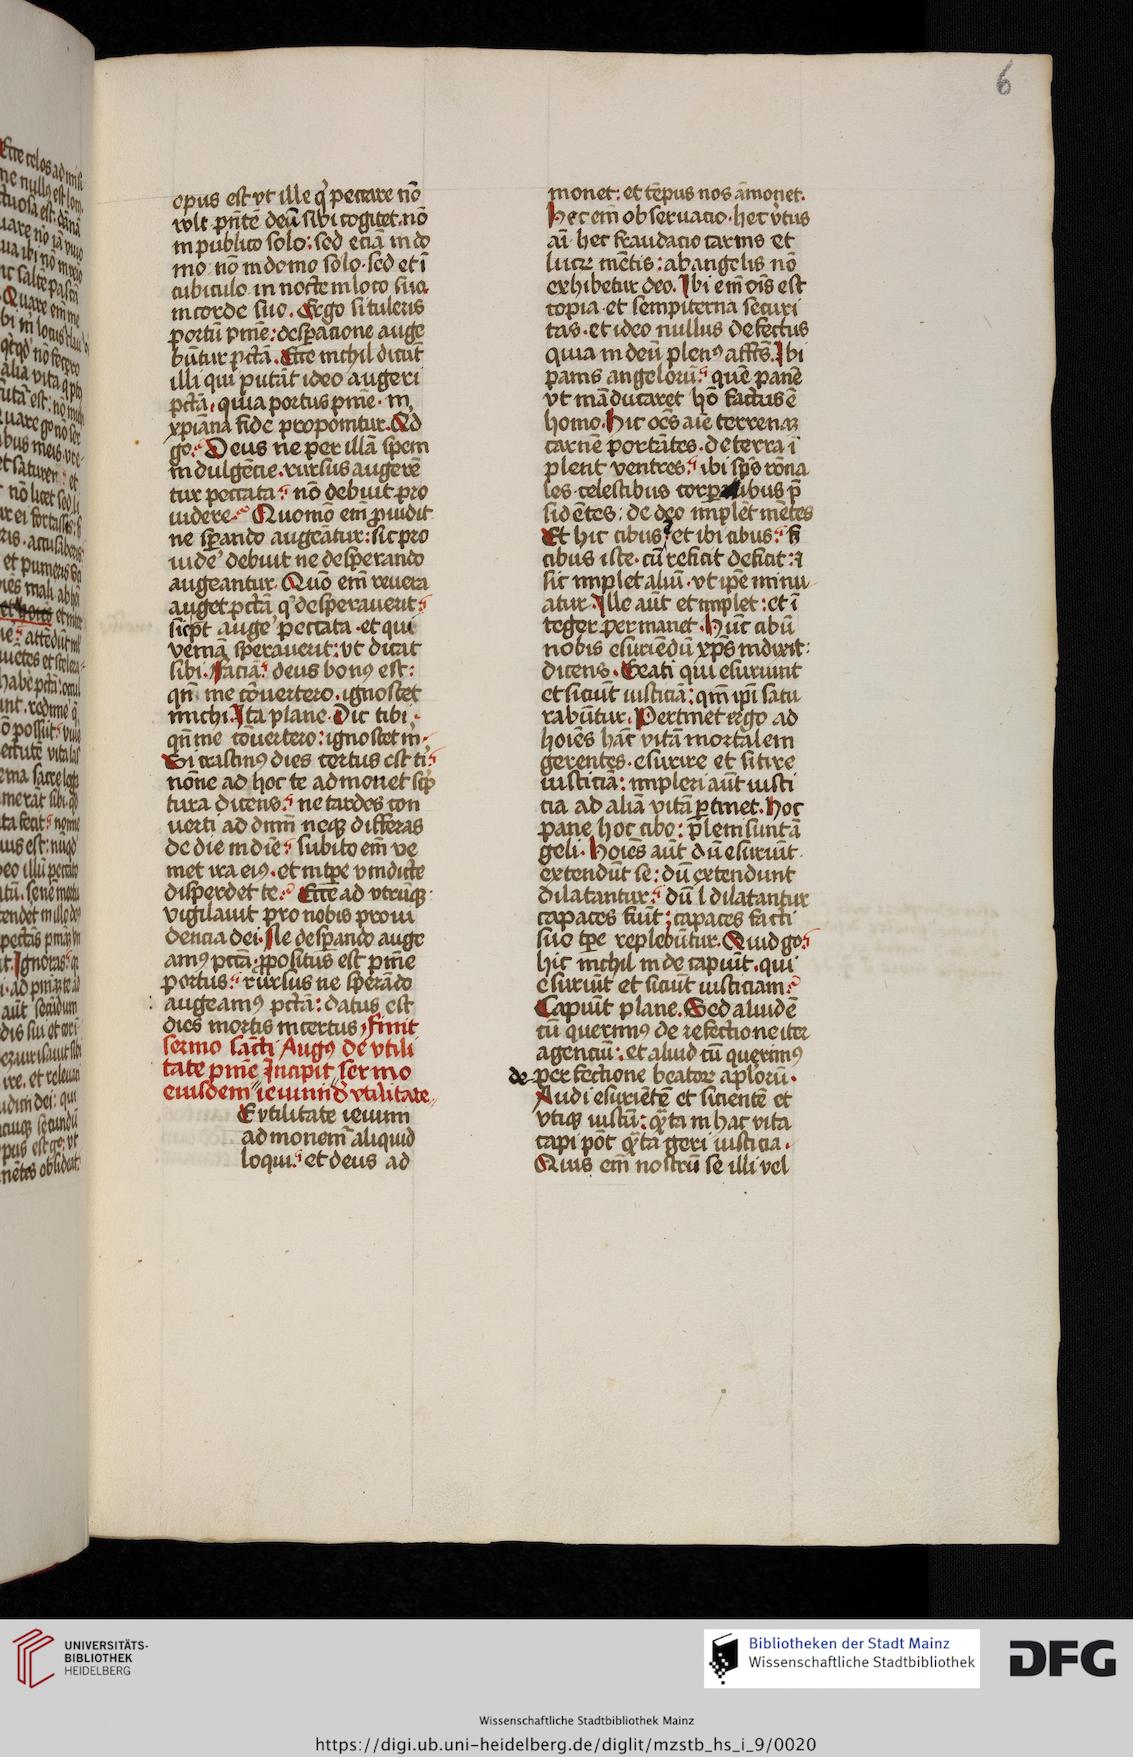 6
opus est vt ille q̇ peccare nō
wlt pn̄tē deū sibi cogitet. nō
in publico solo: sed eciā in do
mo nō in domo solo. sed et ī
cubiculo in nocte in loco suo
in corde suo. Ergo si tuleris
portū pn̄ie: desꝑacione auge
būtur pctā. Ecce nichil dicūt
illi qui putāt ideo augeri
pctā, quia portus pn̄ie. in
xp̄iana fide proponitur. Ad
go. Deus ne per illā spem
indulgēcie. rursus augerē
tur peccata: nō debuit pro
uidere. Quomō em̄ ꝓuidit
ne sꝑando augeātur: sic pro
uide᷒ debuit ne desperando
augeantur. Quō em̄ reuera
auget pctā q̇ desperauerit:
sic pt̄ auge᷒ peccata. et qui
veniā sperauerit: vt dicat
sibi. Faciā: deus bonꝰ est:
qn̄ me cōuertero. ignoscet
michi. Ita plane. Dic tibi.
qn̄ me cōuertero: ignoscet m̄.
Si crastinꝰ dies certus est ti:
nōne ad hoc te admonet sc̄p
tura dicens: ne tardes con
uerti ad dn̄m neqꝫ differas
de die in diē: subito em̄ ve
niet ira eiꝰ. et in tp̄e vindicte
disperdet te. Ecce ad vtrūqꝫ
vigilauit pro nobis proui
dencia dei. Ne desꝑando auge
amꝰ pctā: ꝓpositus est pn̄ie
portus: rūrsus ne sperādo
augeamꝰ pctā: datus est
dies mortis incertus, finit
sermo sācti Augꝰ de vtili
tate pn̄ie Incipit sermo
eiusdem ieiunii d̄ vtilitate
E vtilitate ieiunii
admonem᷒ aliquid
loqui: et deus ad
monet: et tēpus nos āmonet.
Hec em̄ obseruacio. hec v̄tus
aī. hec fraudacio carnis et
lucꝝ mētis: ab angelis nō
exhibetur deo. Ibi em̄ oīs est
copia et sempiterna securi
tas. et ideo nullus defectus
quia in deū plenꝰ affcūs. Ibi
panis angeloꝝ: quē panē
vt māducaret hō factus ē
homo. Hic oēs aīe terrenā
carnē portātes. de terra ī
plent ventres: ibi sp̄s rōna
les. celestibus corporalibus p̄
sidētes: de deo implēt mētes
Et hic cibus: et ibi cibus: s
cibus iste. cū reficit deficit: ⁊
sic implet aluū. vt ip̄e minu
atur. Ille aūt et implet: et ī
teger permanet. Hūc cibū
nobis esuriēdū xp̄s indixit:
dicens. Beati qui esuriunt
et siciūt iusticiā: qm̄ ip̄i satu
rabūtur. Pertinet ergo ad
hoīes hāc vitā mortalem
gerentes. esurire et sitire
iusticiā: impleri aūt iusti
cia ad aliā vitā ꝑtinet. Hoc
pane hoc cibo: pleni sunt ā
geli. Hoīes aūt dū esuriūt.
extendūt se: dū extendunt
dilatantur: dū dilatantur
capaces fiūt; capaces facti
suo tp̄e replebūtur. Quid go:
hic nichil inde capiūt. qui
esuriūt et siciūt iusticiam.
Capiūt plane. Sed aliud ē
cū querimꝰ de refectione iter
agenciū: et aliud cū querimꝰ
de perfectione beatoꝝ ap̄loꝝ.
Audi esurietē et sicientē et
vtiqꝫ iustū: q̄ta in hac vita
capi pōt q̄ta geri iusticia.
Quis em̄ nostrū se illi vel
UNIVERSITÄTS-
BIBLIOTHEK
HEIDELBERG
Bibliotheken der Stadt Mainz
Wissenschaftliche Stadtbibliothek
DFG
Wissenschaftliche Stadtbibliothek Mainz
https://digi.ub.uni-heidelberg.de/diglit/mzstb_hs_i_9/0020